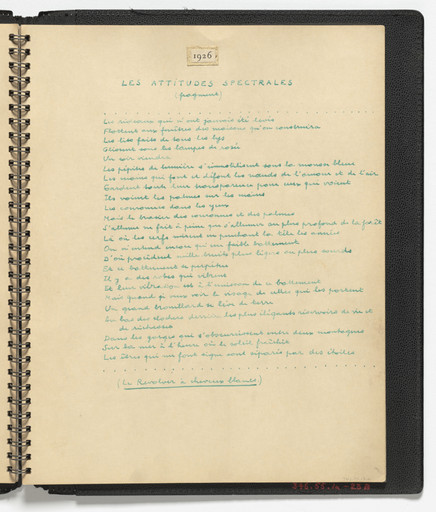 1926
LES ATTITUDES SPECTRALES
(fragment)
Les rideaux qui n'ont jamais été levés
Flottent aux fenêtres des maisons qu'on construira
Les lits faits de tous les lys
Glissent sous les lampes de rosée
Un soir viendra
Les pépites de lumière s'immobilisent sous la mousse bleue
Les mains qui font et défont les nœuds de l'amour et de l'air
Gardent toute leur transparence pour ceux qui voient
Ils voient les palmes sur les mains
Les couronnes dans les yeux
Mais le brasier des couronnes et des palmes
S'allume ne fait à peine que s'allumer au plus profond de la forêt
Là où les cerfs mirent en penchant la tête les années
On n'entend encore qu'un faible battement
D'où procèdent mille bruits plus légers ou plus sourds
Et ce battement se perpétue
Il y a des robes qui vibrent
Et leur vibration est à l'unisson de ce battement
Mais quand je veux voir le visage de celles qui les portent
Un grand brouillard se lève de terre
Au bas des clochers derrière les plus élégants réservoirs de vie et
de richesse
Dans les gorges qui s'obscurcissent entre deux montagnes
Sur la mer à l'heure où le soleil fraîchit
Les êtres qui me font signe sont séparés par des étoiles
(Le Revolver à cheveux blancs)